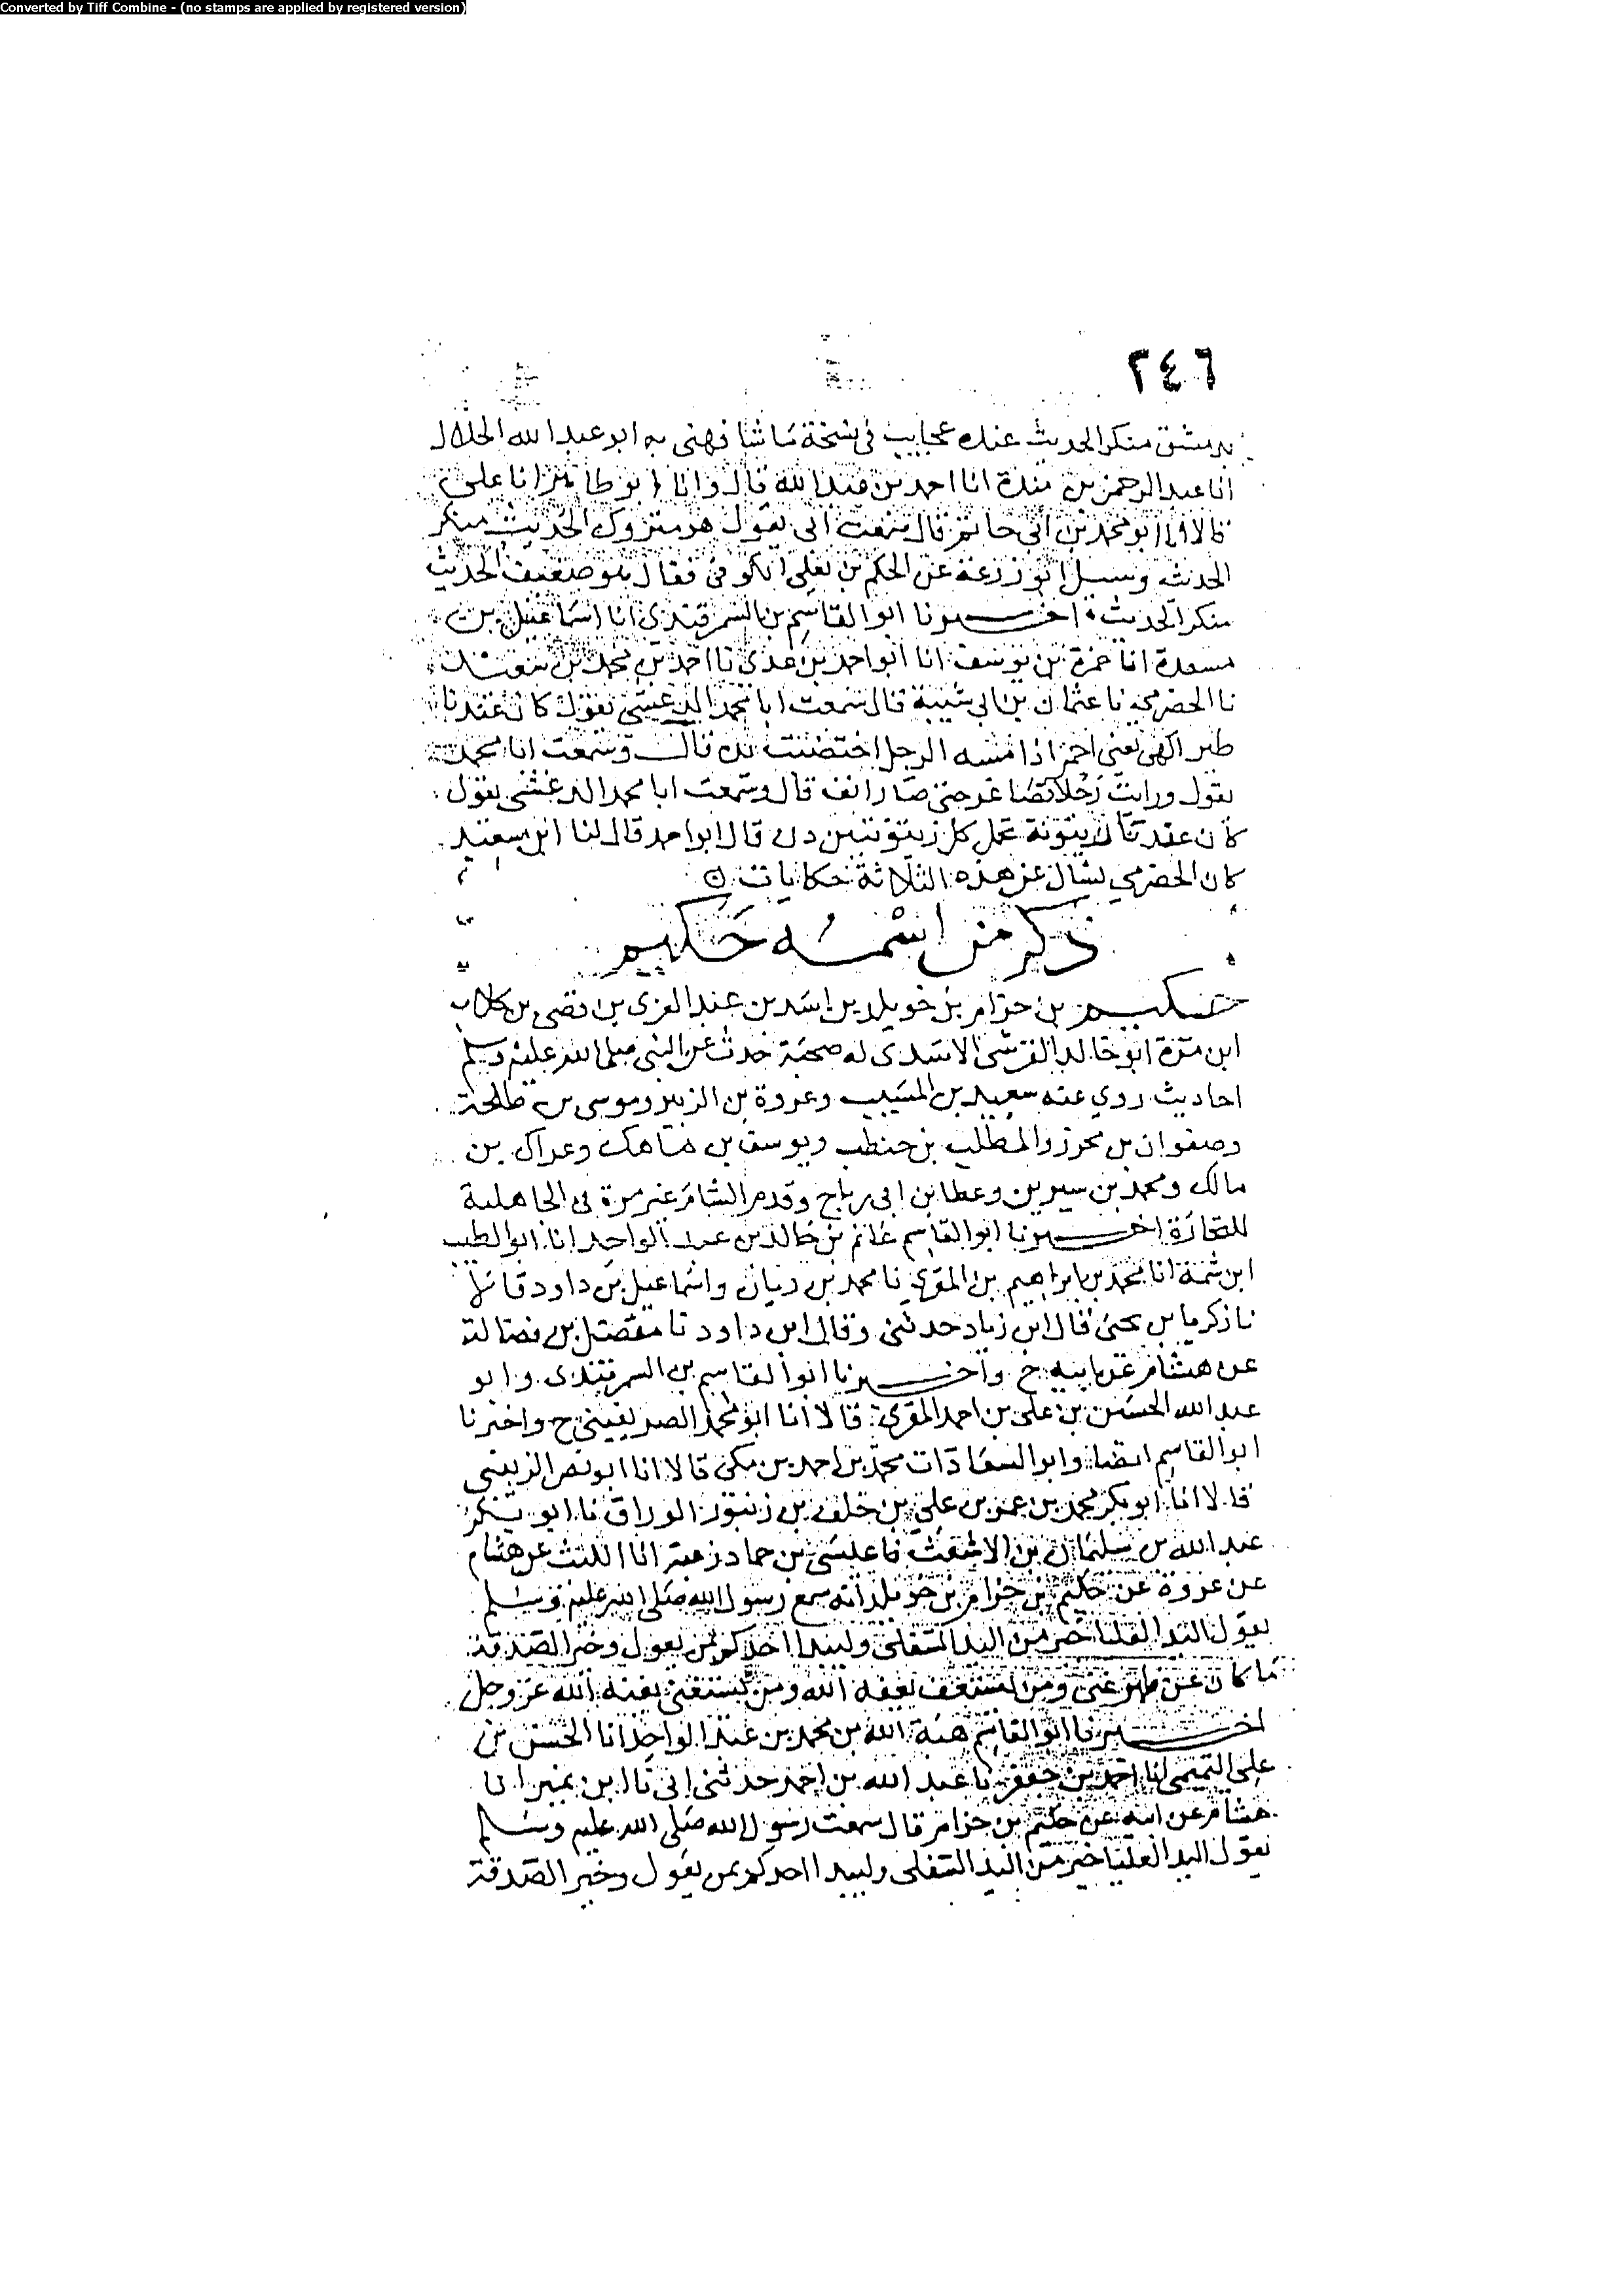 Converted by Tiff Combine - (no stamps are applied by registered version)
٢٤٦
بدمشق منكر الحديث عنده عجايب في نسخة ما شافهني به ابو عبد الله الخلال
انا عبد الرحمن بن مندة انا احمد بن عبد الله قال وانا ابو طاهر انا علي
قالا انا ابو محمد بن ابي حاتم قال سمعت ابي يقول هو متروك الحديث منكر
الحديث وسيل ابو زرعة عن الحكم بن يعلى الكوفي فقال هو ضعيف الحديث
منكر الحديث اخبرنا ابو القاسم بن السمرقندي انا اسماعيل بن
مسعدة انا حمزة بن يوسف انا ابو احمد بن عدي نا احمد بن محمد بن سعيد
نا الحضرمي نا عثمان بن ابي شيبة قال سمعت ابا محمد الدغشي يقول كان عندنا
طير يعني احمر اذا مسه الرجل اختضبت يده قال وسمعت ابا محمد
يقول ورايت رجلا حتى صار قال وسمعت ابا محمد الدغشي يقول
كان عندنا زيتونة تحمل كل زيتونتين دن قال ابو احمد قال لنا ابن سعيد
كان الحضرمي يسال عن هذه الثلاثة حكايات
ذكر من اسمه حكيم
حكيم بن حزام بن خويلد بن اسد بن عبد العزى بن قصي بن كلاب
ابن مرة ابو خالد القرشي الاسدي له صحبة حدث عن النبي صلى الله عليه وسلم
احاديث روي عنه سعيد بن المسيب وعروة بن الزبير وموسى بن طلحة
وصفوان بن محرز والمطلب بن حنطب ويوسف بن ماهك وعراك بن
مالك ومحمد بن سيرين وعطا بن ابي رباح وقدم الشام غير مرة في الجاهلية
للتجارة اخبرنا ابو القاسم غانم بن خالد بن عبد الواحد انا ابو الطيب
ابن شمة انا محمد بن ابراهيم بن المقري نا محمد بن زبان واسماعيل بن داود قالا
نا زكريا بن يحيى قال ابن زباد حدثني وقال ابن داود نا مفضل بن فضالة
عن هشام عن ابيه ح واخبرنا ابو القاسم بن السمرقندي وابو
عبد الله الحسين بن علي بن احمد المقري قالا انا ابو محمد الصريفيني ح واخبرنا
ابو القاسم ايضا وابو السعادات محمد بن احمد بن مكي قالا انا ابو نصر الزينبي
قالا انا ابو بكر محمد بن عمر بن علي بن خلف بن زنبور الوراق نا ابو بكر
عبد الله بن سليمان بن الاشعث نا عيسى بن حماد زغبة انا الليث عن هشام
عن عروة عن حكيم بن حزام بن خويلد انه سمع رسول الله صلى الله عليه وسلم
يقول اليد العليا خير من اليد السفلى وليبدا احدكم بمن يعول وخير الصدقة
ما كان عن ظهر غنى ومن يستعفف يعفه الله ومن يستغني يغنه الله عز وجل
اخبرنا ابو القاسم هبة الله بن محمد بن عبد الواحد انا الحسن بن
علي التميمي انا احمد بن جعفر نا عبد الله بن احمد حدثني ابي نا ابن نمير انا
هشام عن ابيه عن حكيم بن حزام قال سمعت رسول الله صلى الله عليه وسلم
يقول اليد العليا خير من اليد السفلى وليبدا احدكم بمن يعول وخير الصدقة